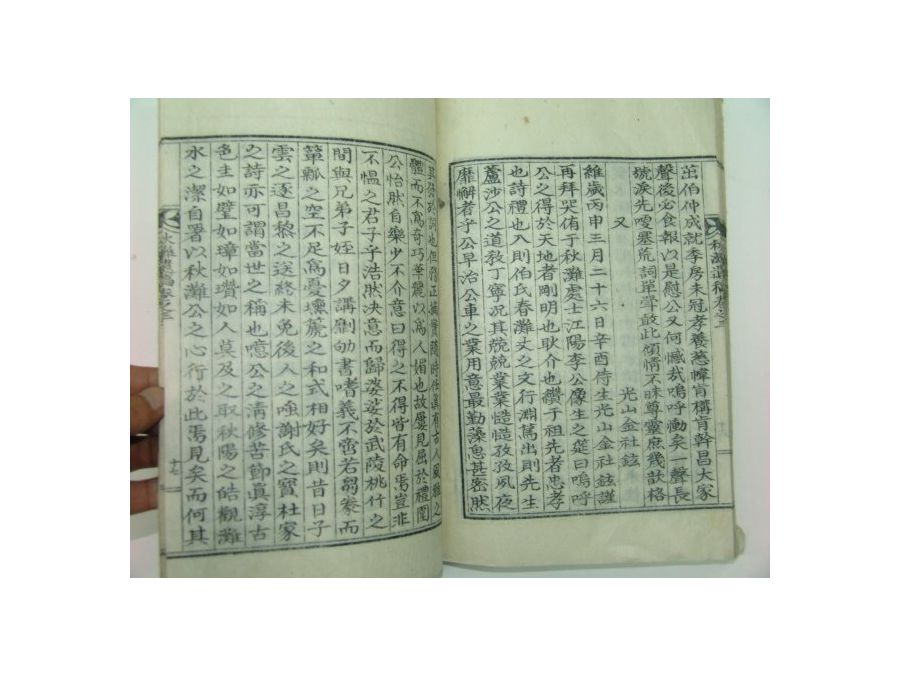 茁伯仲成就李房未冠孝養慈幃肯構肯幹昌大家
聲後必食報以是慰公又何憾哉嗚呼慟矣一聲長
號淚先噯塞荒詞單觴敢此傾情不昧尊靈庶幾歆格
又 光山金社鉉
維歲丙申三月二十六日辛酉侍生光山金社鉉謹
再拜哭侑于秋灘處士江陽李公像生之筵曰嗚呼
公之得於天地者剛明也耿介也纘于祖先者忠孝
也詩禮也入則伯氏春灘丈之文行淵篤出則先生
蘆沙公之道敎丁寧况其兢兢業業慥慥孜孜夙夜
靡懈者乎公早治公車之業用意最勤藻思甚密然
秋灘遺稿卷之三
體而不爲奇巧華麗以爲人媚也故屢見屈於禮闈
公怡然自樂少不介意曰得之不得皆有命焉豈非
不慍之君子乎浩然决意而歸婆娑於武陵桃竹之
間與兄弟子姪日夕講劘劬書嗜義不啻若芻豢而
簞瓢之空不足爲憂壎篪之和式相好矣則昔日子
雲之逐昌黎之送終未免後人之嗤謝氏之寶杜家
之詩亦可謂當世之稱也噫公之淸修苦節眞淳古
色圭如璧如璋如瓚如人莫及之取秋陽之皓觀灘
水之潔自署以秋灘公之心行於此焉見矣而何其
秋灘遺稿卷之三
十七